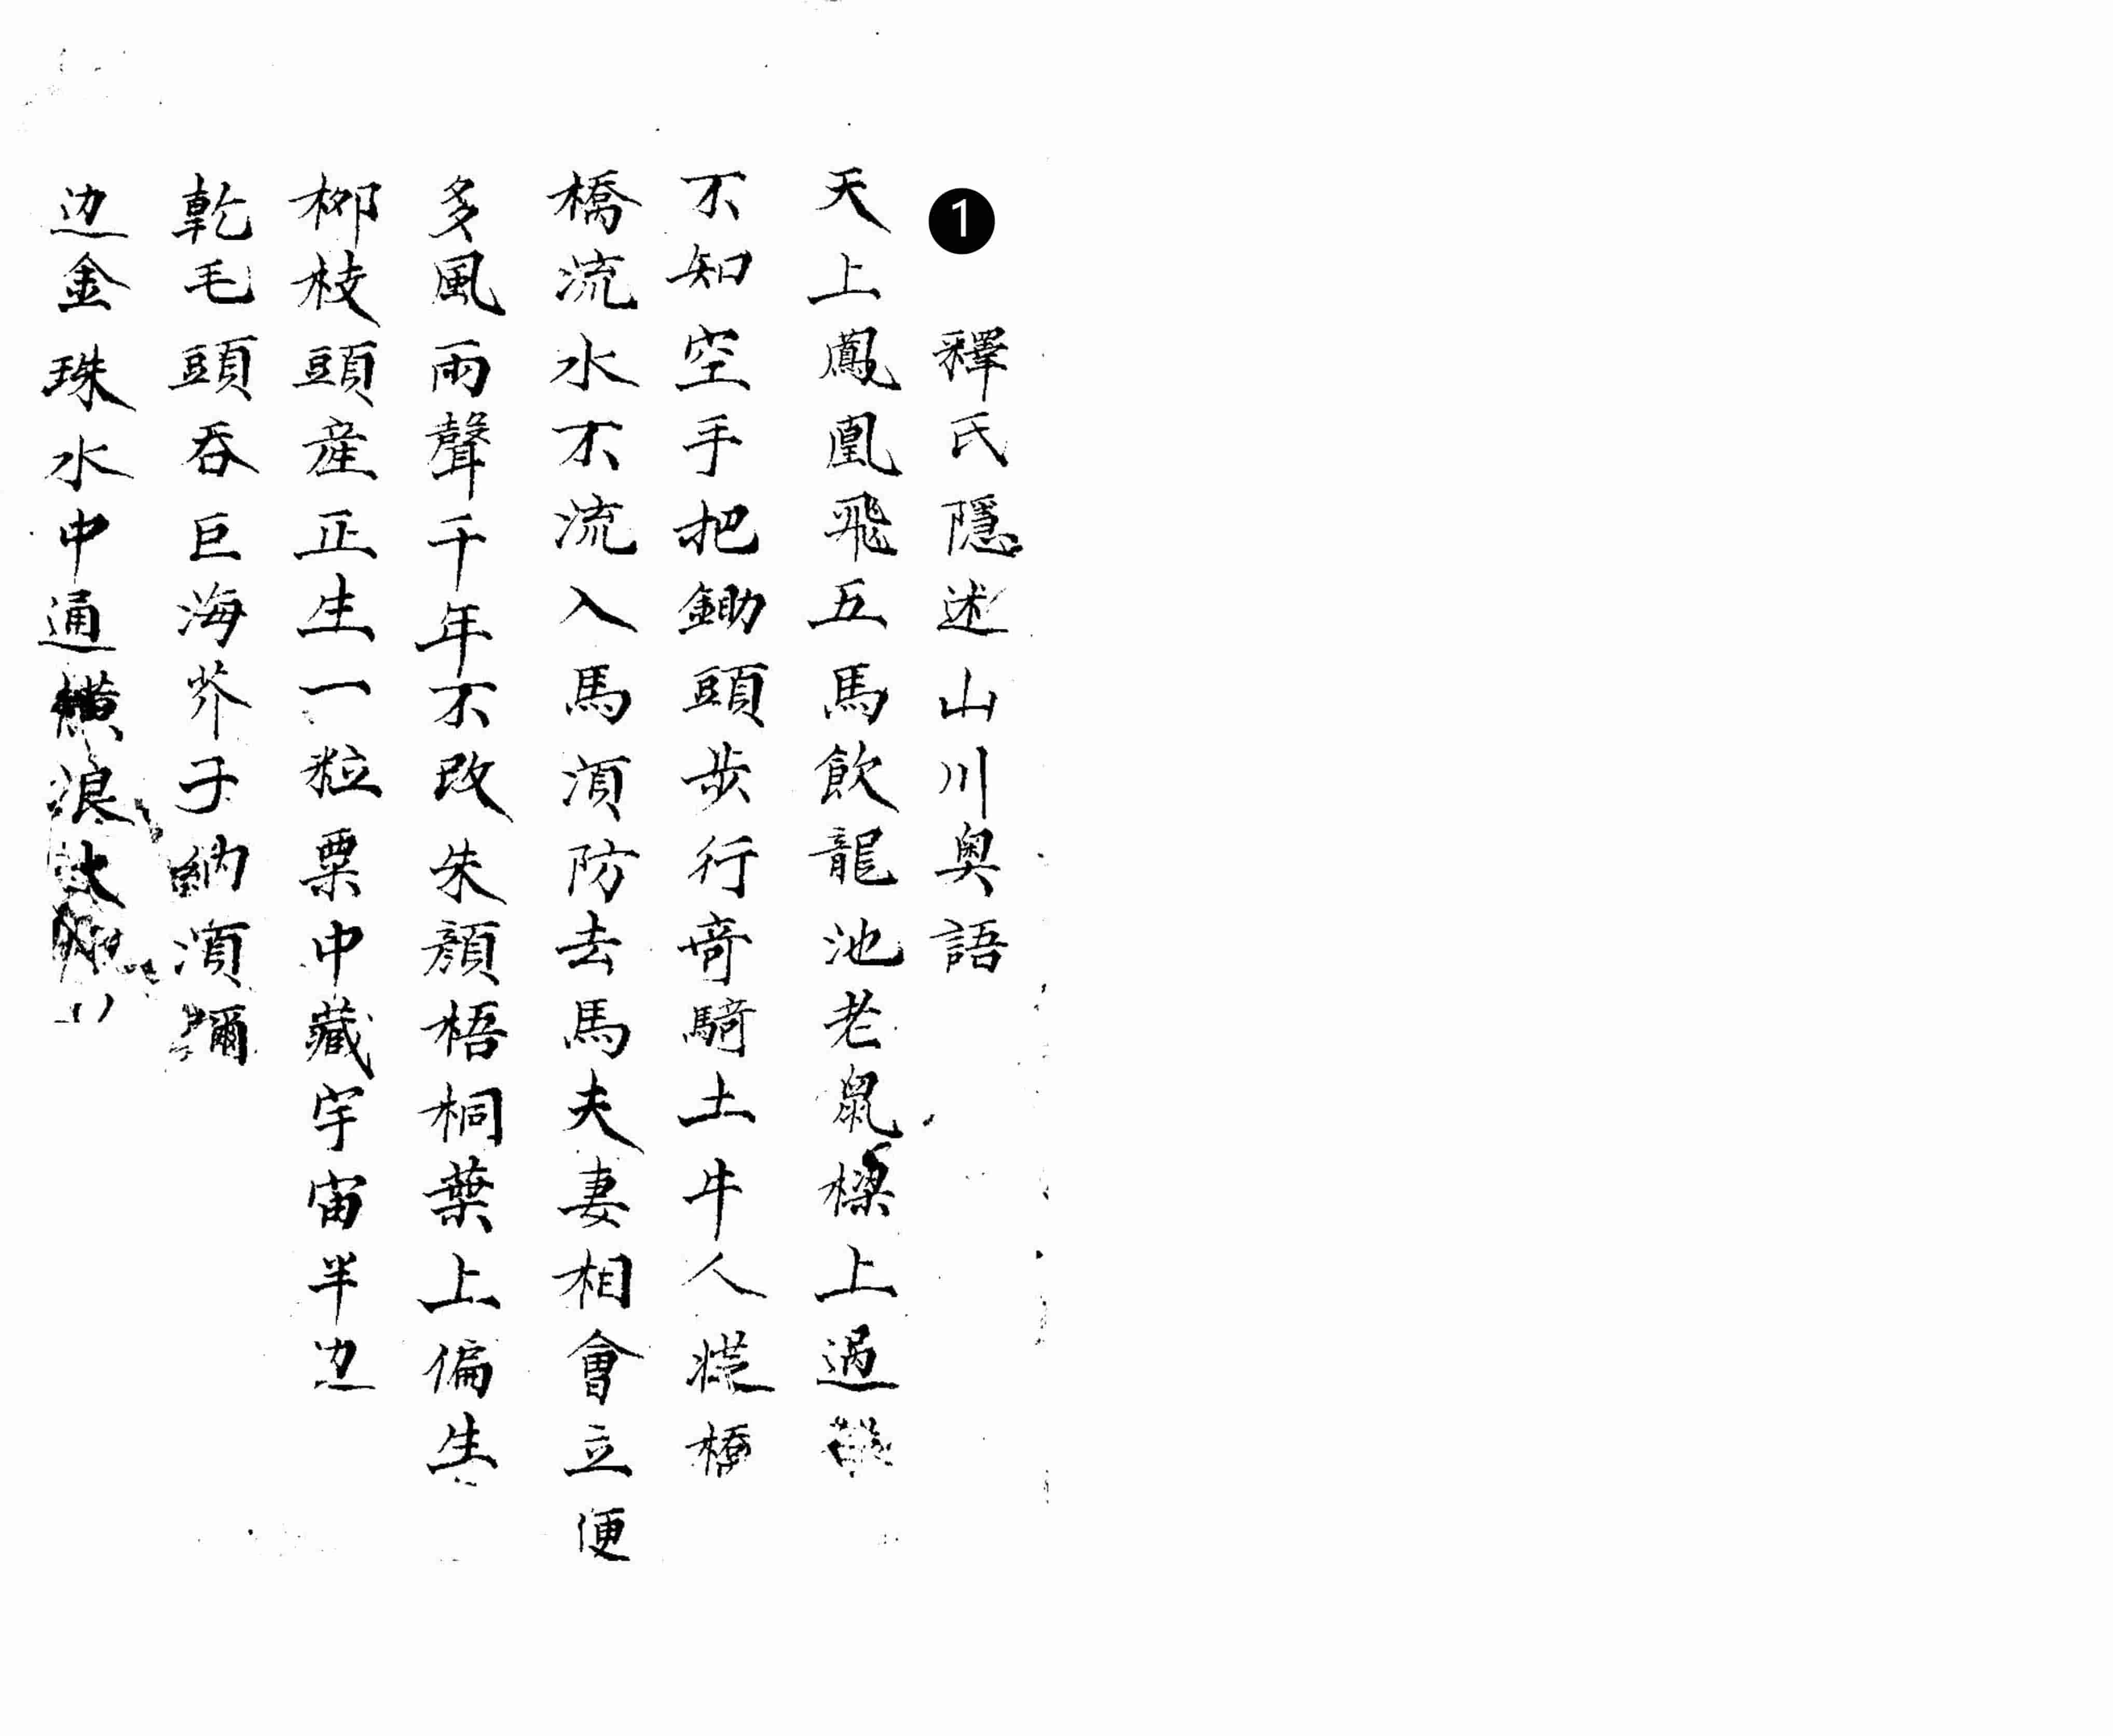 1
釋氏隱述山川奧語
天上鳳凰飛五馬飲龍池老鼠樑上過
不知空手把鋤頭步行奇騎土牛人從橋
橋流水不流入馬須防去馬夫妻相會立便
多風雨聲千年不改朱顏梧桐葉上偏生
柳枝頭産正生一粒粟中藏宇宙半边
乾毛頭吞巨海芥子納須彌
边金珠水中通橫浪大